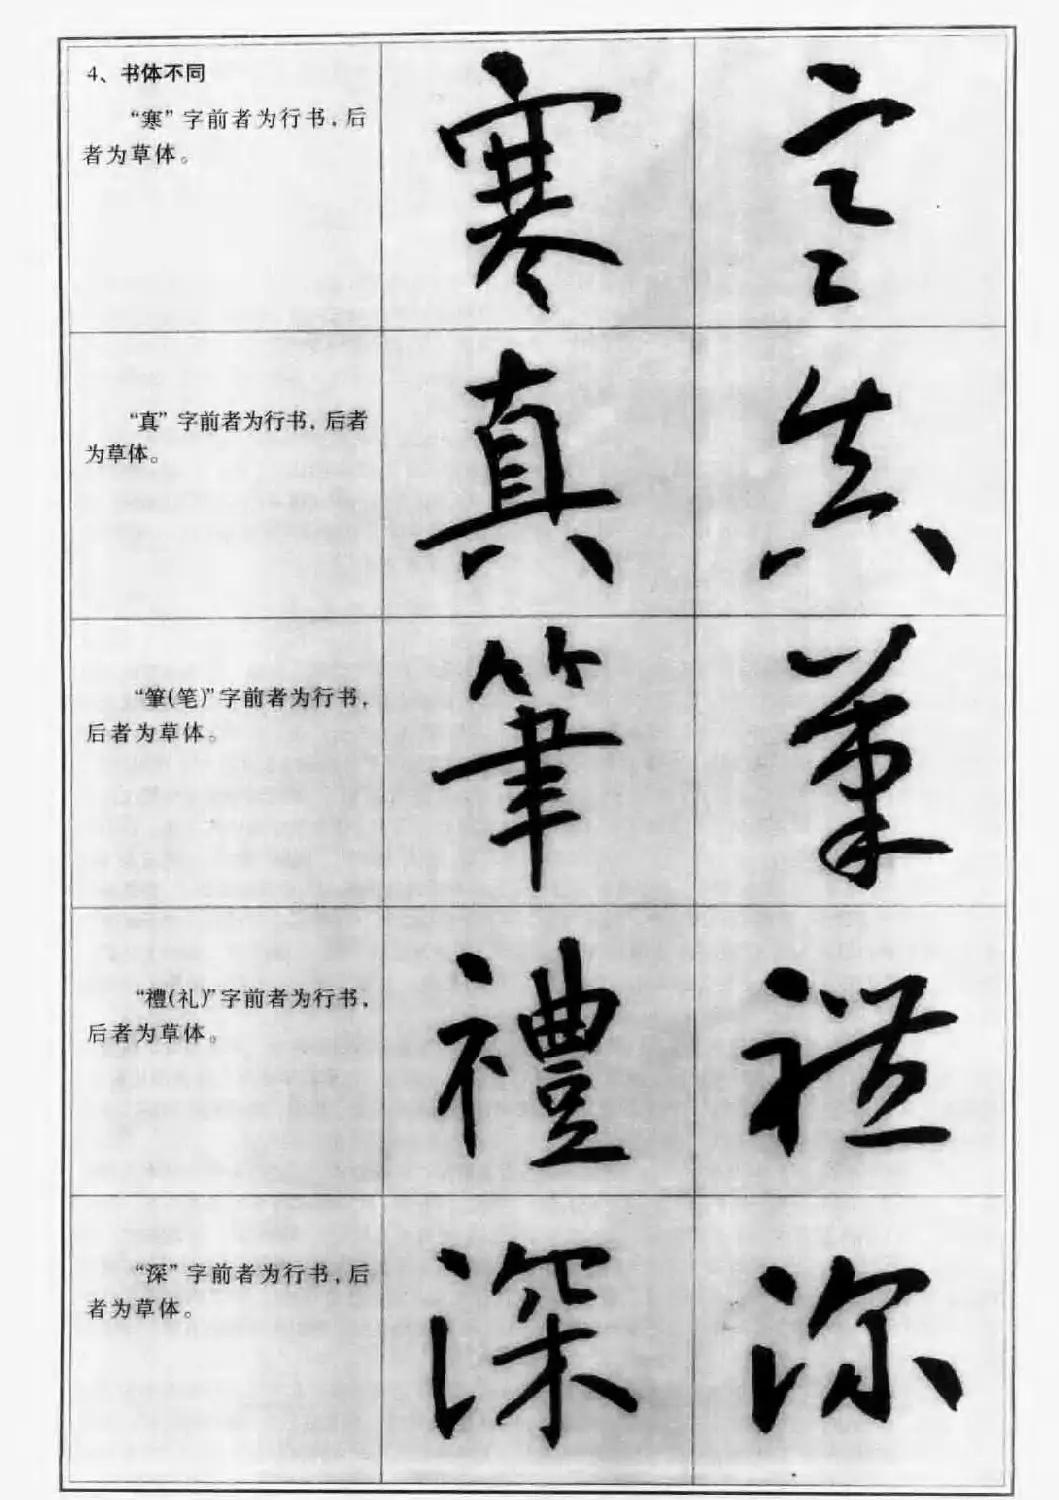 4、书体不同
“寒”字前者为行书，后
者为草体。
寒 寒
“真”字前者为行书，后者
为草体。
真 真
“筆(笔)”字前者为行书，
后者为草体。
筆 筆
“禮(礼)”字前者为行书，
后者为草体。
禮 禮
“深”字前者为行书，后
者为草体。
深 深